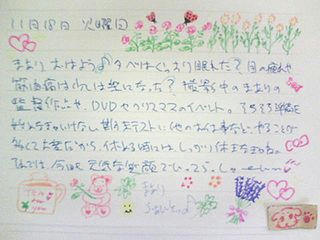 11月18日 火曜日
まあり おはよう♪ 夕べはぐっすり眠れた? 目の疲れや
筋肉痛は 少しは 楽になった? 撮影中のまありの
監督作品や、DVDやクリスマスのイベント。そろそろ準備を
始めなきゃいけない 期末テストに 他のお仕事など、やることが
多くて大変だから、休める時には しっかり 休みましょうね。
それでは、今日も 元気な笑顔で いってらっしゃーい
まあり